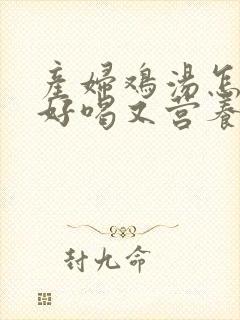 產婦鸡湯怎
好喝又营養
封九命